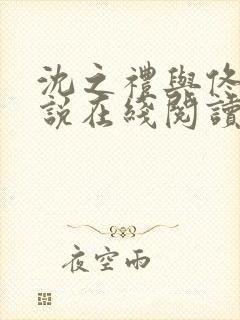 沈之禮與佟
說在綫閱讀
夜空雨